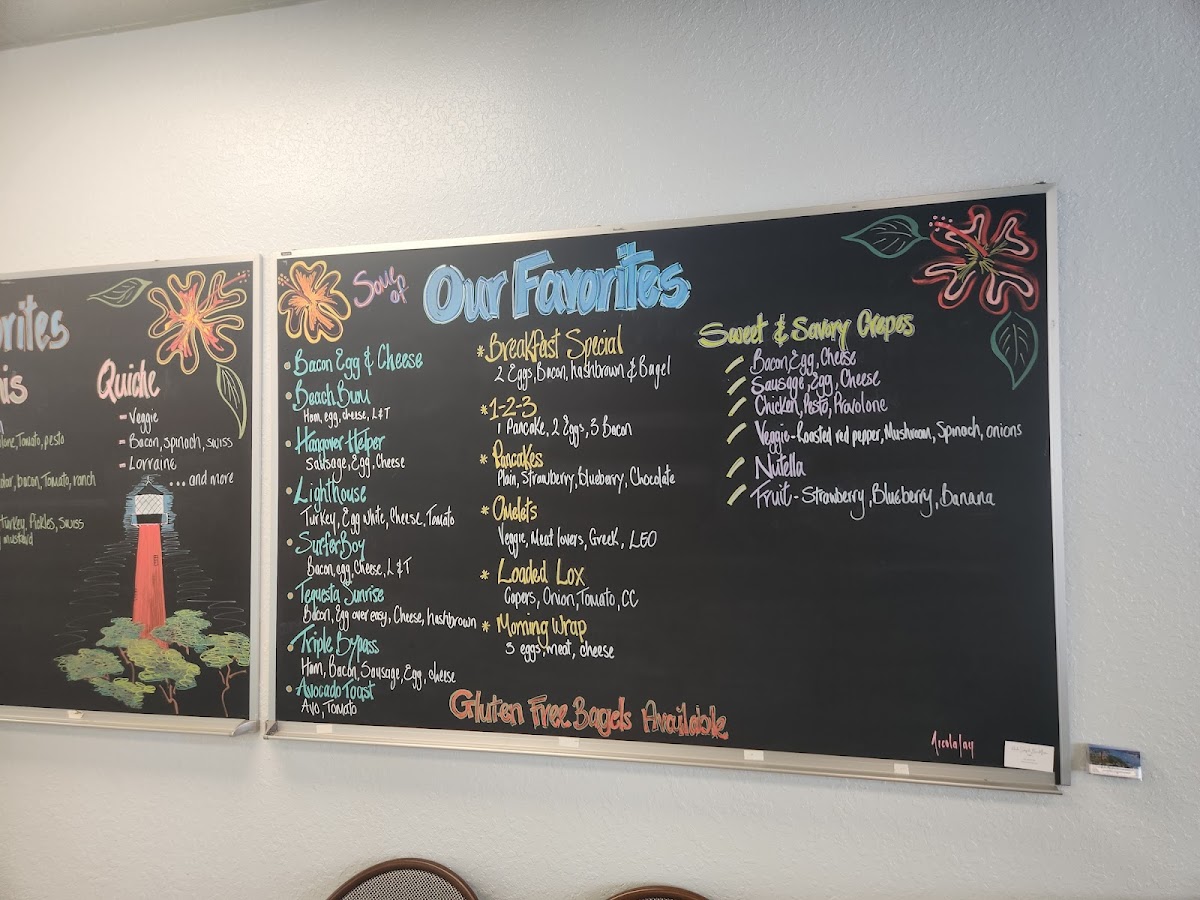 orites
is
lone, Tomato, pesto
dar, bacon, Tomato, ranch
Turkey, Pickles, Swiss
mustard
Quiche
- Veggie
- Bacon, spinach, swiss
- Lorraine
... and more
Some of
Our Favorites
Bacon Egg & Cheese
Beach Bum
Ham, egg, cheese, L&T
Hangover Helper
Sausage, Egg, Cheese
Lighthouse
Turkey, Egg white, Cheese, Tomato
Surfer Boy
Bacon, egg, Cheese, L&T
Tequesta Sunrise
Bacon, Egg over easy, Cheese, hashbrown
Triple Bypass
Ham, Bacon, Sausage, Egg, cheese
Avocado Toast
Avo, Tomato
* Breakfast Special
2 Eggs, Bacon, hashbrown & Bagel
* 1-2-3
1 Pancake, 2 Eggs, 3 Bacon
* Pancakes
Plain, Strawberry, Blueberry, Chocolate
* Omelets
Veggie, Meat lovers, Greek, LEO
* Loaded Lox
Capers, Onion, Tomato, CC
* Morning Wrap
3 eggs, meat, cheese
Sweet & Savory Crepes
Bacon, Egg, Cheese
Sausage, Egg, Cheese
Chicken, Pesto, Provolone
Veggie - Roasted red pepper, Mushroom, Spinach, onions
Nutella
Fruit - Strawberry, Blueberry, Banana
Gluten Free Bagels Available